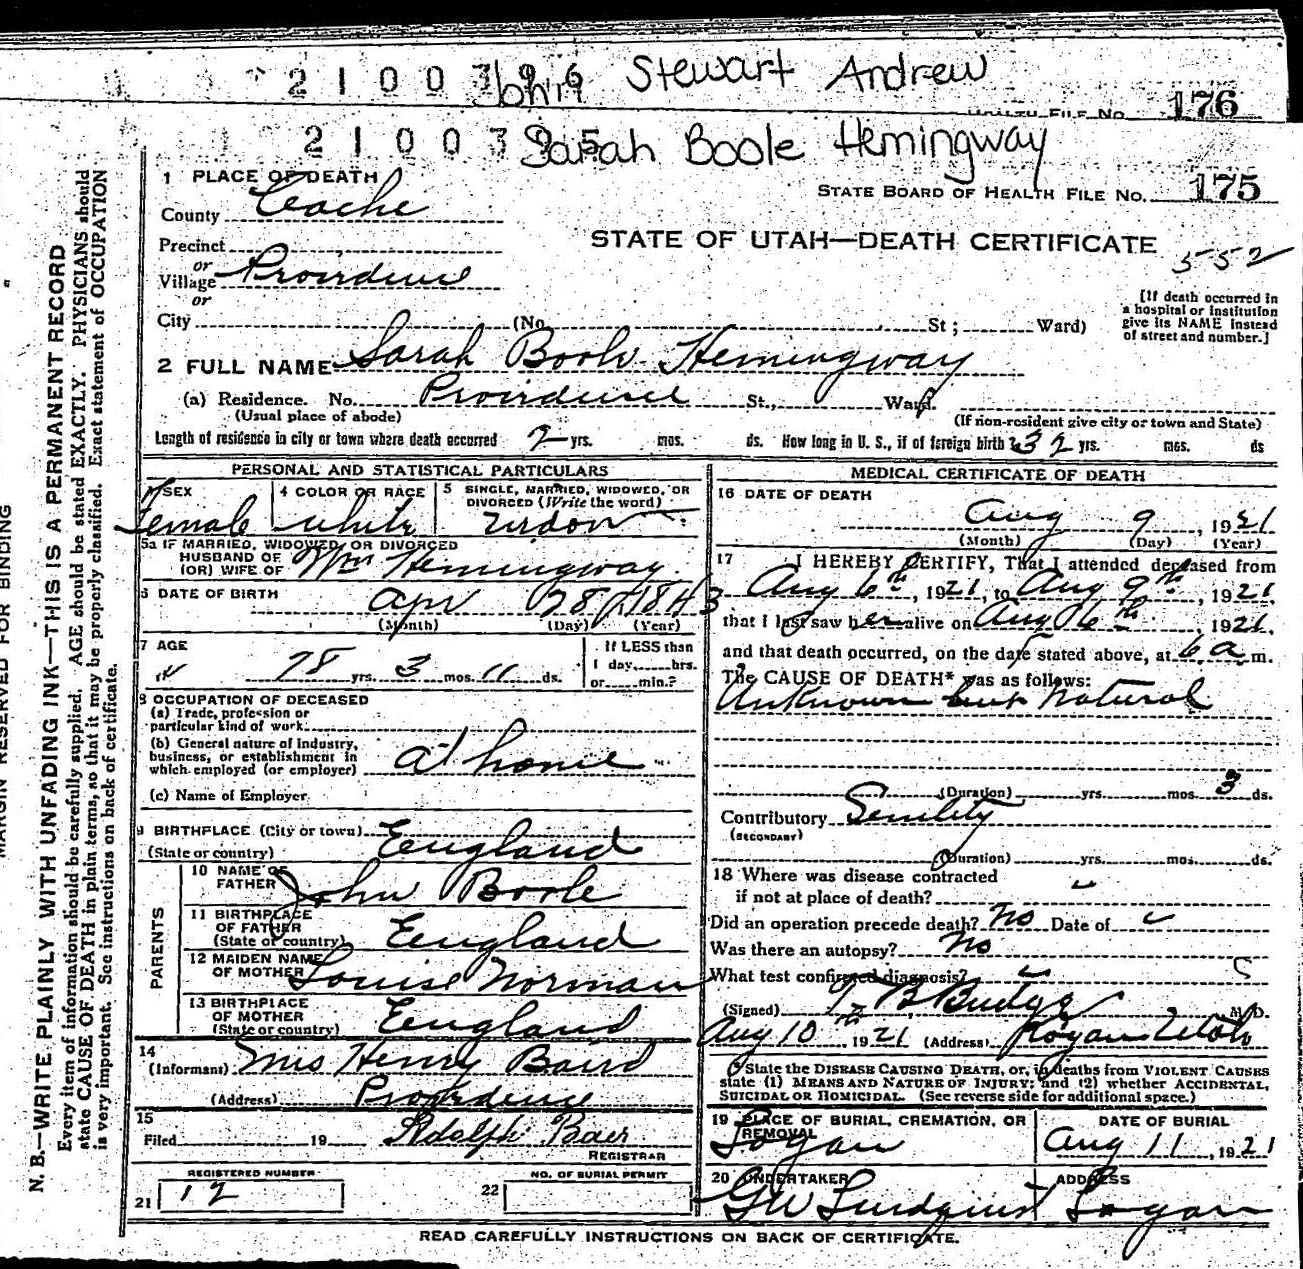 2100396 John Stewart Andrew
HEALTH FILE NO. 176
2100395 Sarah Boole Hemingway
1 PLACE OF DEATH
STATE BOARD OF HEALTH FILE NO. 175
County Cache
STATE OF UTAH—DEATH CERTIFICATE
552
Precinct
or
Village Providence
or
City (No. St; Ward)
[If death occurred in a hospital or institution give its NAME instead of street and number.]
2 FULL NAME Sarah Boole Hemingway
(a) Residence. No. Providence St., Ward.
(Usual place of abode) (If non-resident give city or town and State)
Length of residence in city or town where death occurred 2 yrs. mos. ds. How long in U. S., if of foreign birth? 32 yrs. mos. ds
PERSONAL AND STATISTICAL PARTICULARS
SEX Female
4 COLOR OR RACE white
5 SINGLE, MARRIED, WIDOWED, OR DIVORCED (Write the word)
5a IF MARRIED, WIDOWED, OR DIVORCED
HUSBAND OF
(OR) WIFE OF Wm Hemingway
6 DATE OF BIRTH Apr 28 1843
(Month) (Day) (Year)
7 AGE
78 yrs. 3 mos. 11 ds.
If LESS than
1 day, hrs.
or min.?
8 OCCUPATION OF DECEASED
(a) Trade, profession or
particular kind of work
(b) General nature of industry,
business, or establishment in
which employed (or employer) at home
(c) Name of Employer
9 BIRTHPLACE (City or town) England
(State or country)
PARENTS
10 NAME OF
FATHER John Boole
11 BIRTHPLACE
OF FATHER
(State or country) England
12 MAIDEN NAME
OF MOTHER Louise Norman
13 BIRTHPLACE
OF MOTHER
(State or country) England
14
(Informant) Mrs Henry Baird
(Address) Providence
15
Filed 19 Adolph Baer
REGISTRAR
REGISTERED NUMBER
21 12
NO. OF BURIAL PERMIT
22
MEDICAL CERTIFICATE OF DEATH
16 DATE OF DEATH
Aug 9, 1921
(Month) (Day) (Year)
17 I HEREBY CERTIFY, That I attended deceased from
Aug 6th, 1921, to Aug 9th, 1921,
that I last saw her alive on Aug 6th, 1921,
and that death occurred, on the date stated above, at 6 a m.
The CAUSE OF DEATH* was as follows:
Unknown but natural
(Duration) yrs. mos. 3 ds.
Contributory Senility
(SECONDARY)
(Duration) yrs. mos. ds.
18 Where was disease contracted
if not at place of death?
Did an operation precede death? No Date of
Was there an autopsy? No
What test confirmed diagnosis?
(Signed) Budge M. D.
Aug 10th, 1921 (Address) Logan Utah
State the DISEASE CAUSING DEATH, or, in deaths from VIOLENT CAUSES
state (1) MEANS AND NATURE OF INJURY; and (2) whether ACCIDENTAL,
SUICIDAL OR HOMICIDAL. (See reverse side for additional space.)
19 PLACE OF BURIAL, CREMATION, OR
REMOVAL
Logan
DATE OF BURIAL
Aug 11, 1921
20 UNDERTAKER
GW Lindquist
ADDRESS
Logan
READ CAREFULLY INSTRUCTIONS ON BACK OF CERTIFICATE.
MARGIN RESERVED FOR BINDING
N. B.—WRITE PLAINLY WITH UNFADING INK—THIS IS A PERMANENT RECORD
Every item of information should be carefully supplied. AGE should be stated EXACTLY. PHYSICIANS should
state CAUSE OF DEATH in plain terms, so that it may be properly classified. Exact statement of OCCUPATION
is very important. See instructions on back of certificate.